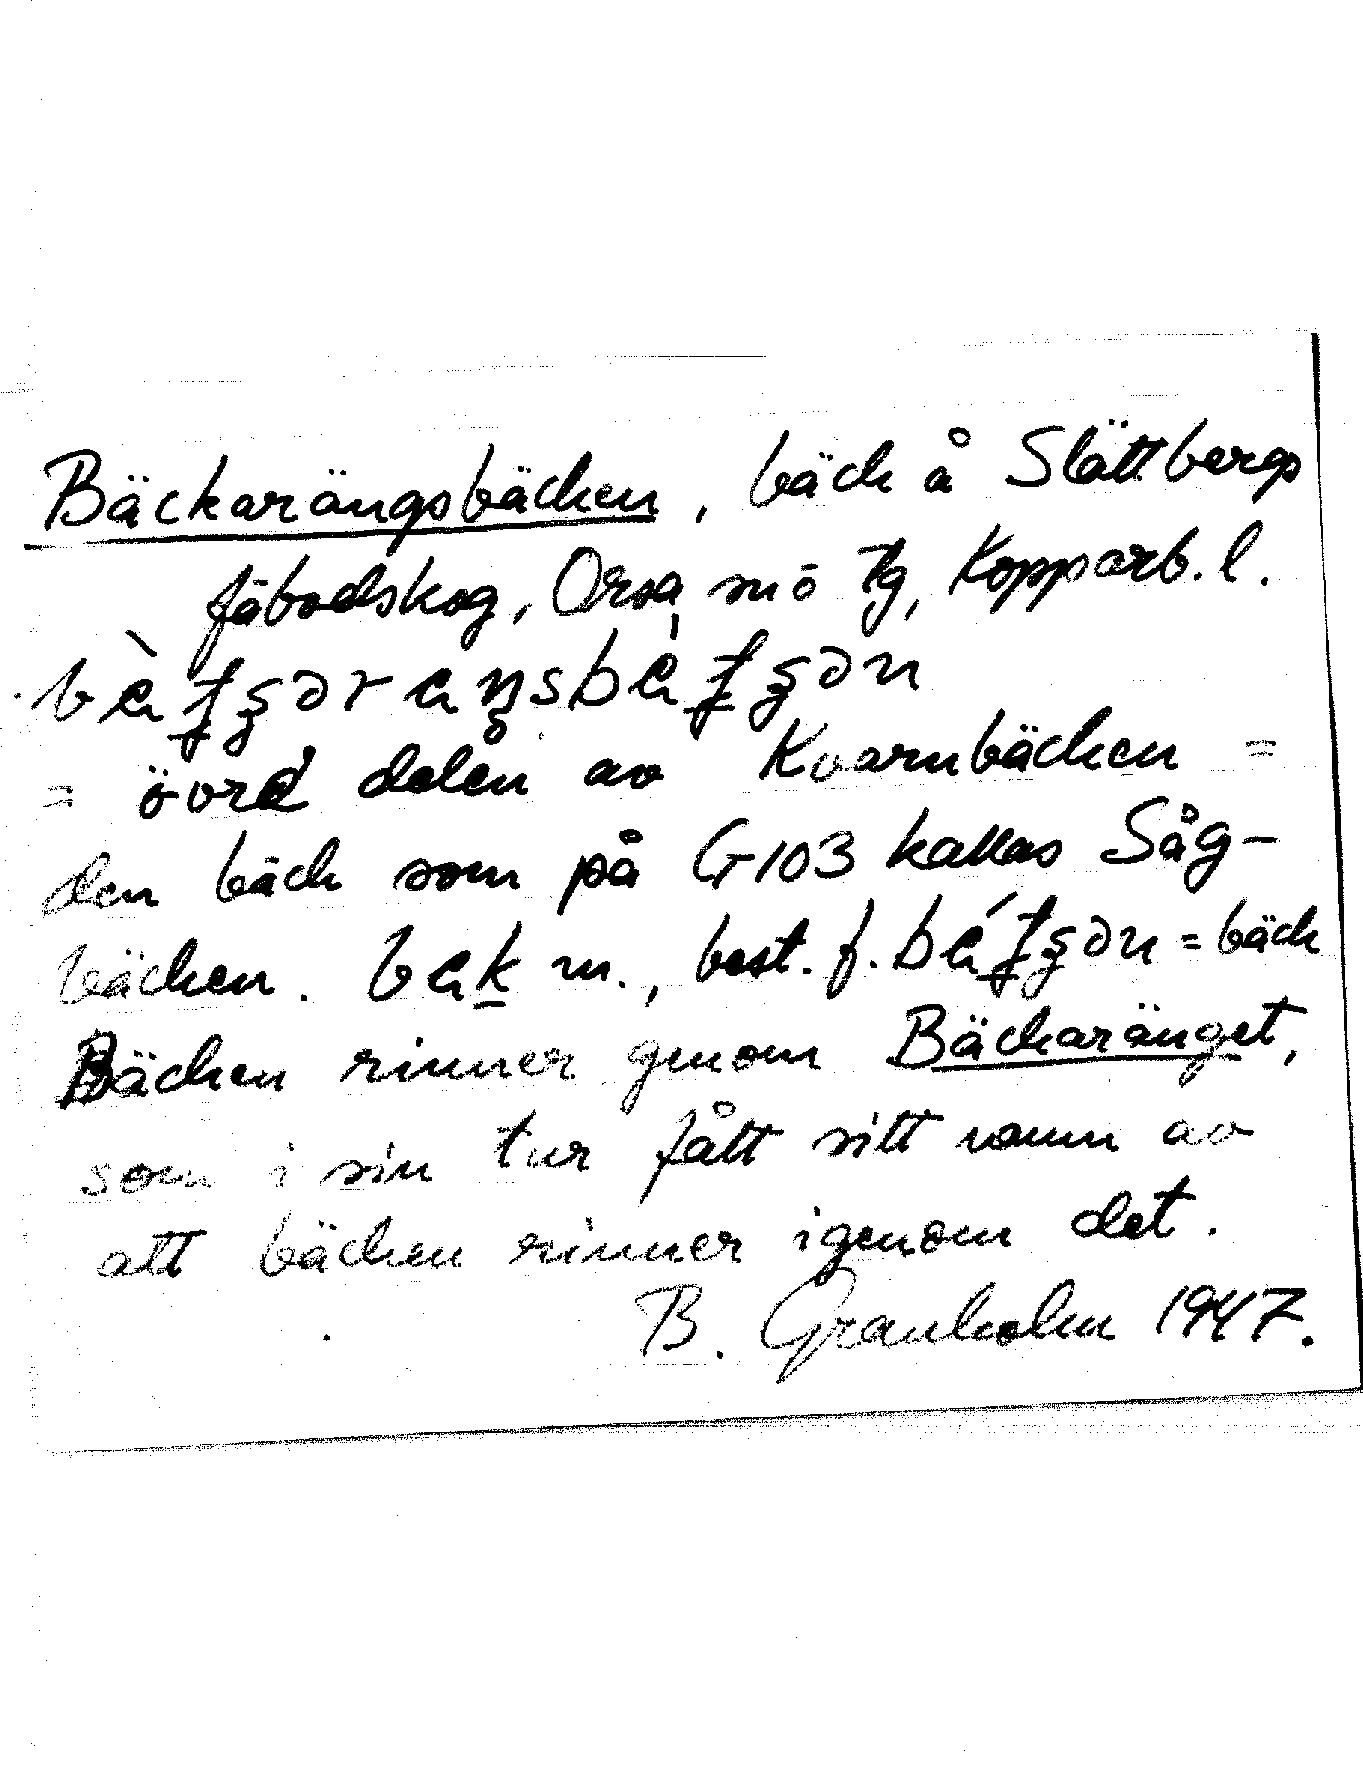 Bäckarängsbäcken, bäck å Slättbergs
fäbodskog, Orsa, snö tg, Kopparb. l.
= övre delen av Kvarnbäcken =
den bäck som på G103 kallas Såg-
bäcken. m., best. f. = bäck
Bäcken rinner genom Bäckaränget,
som i sin tur fått sitt namn av
att bäcken rinner igenom det.
B. Granholm 1947.